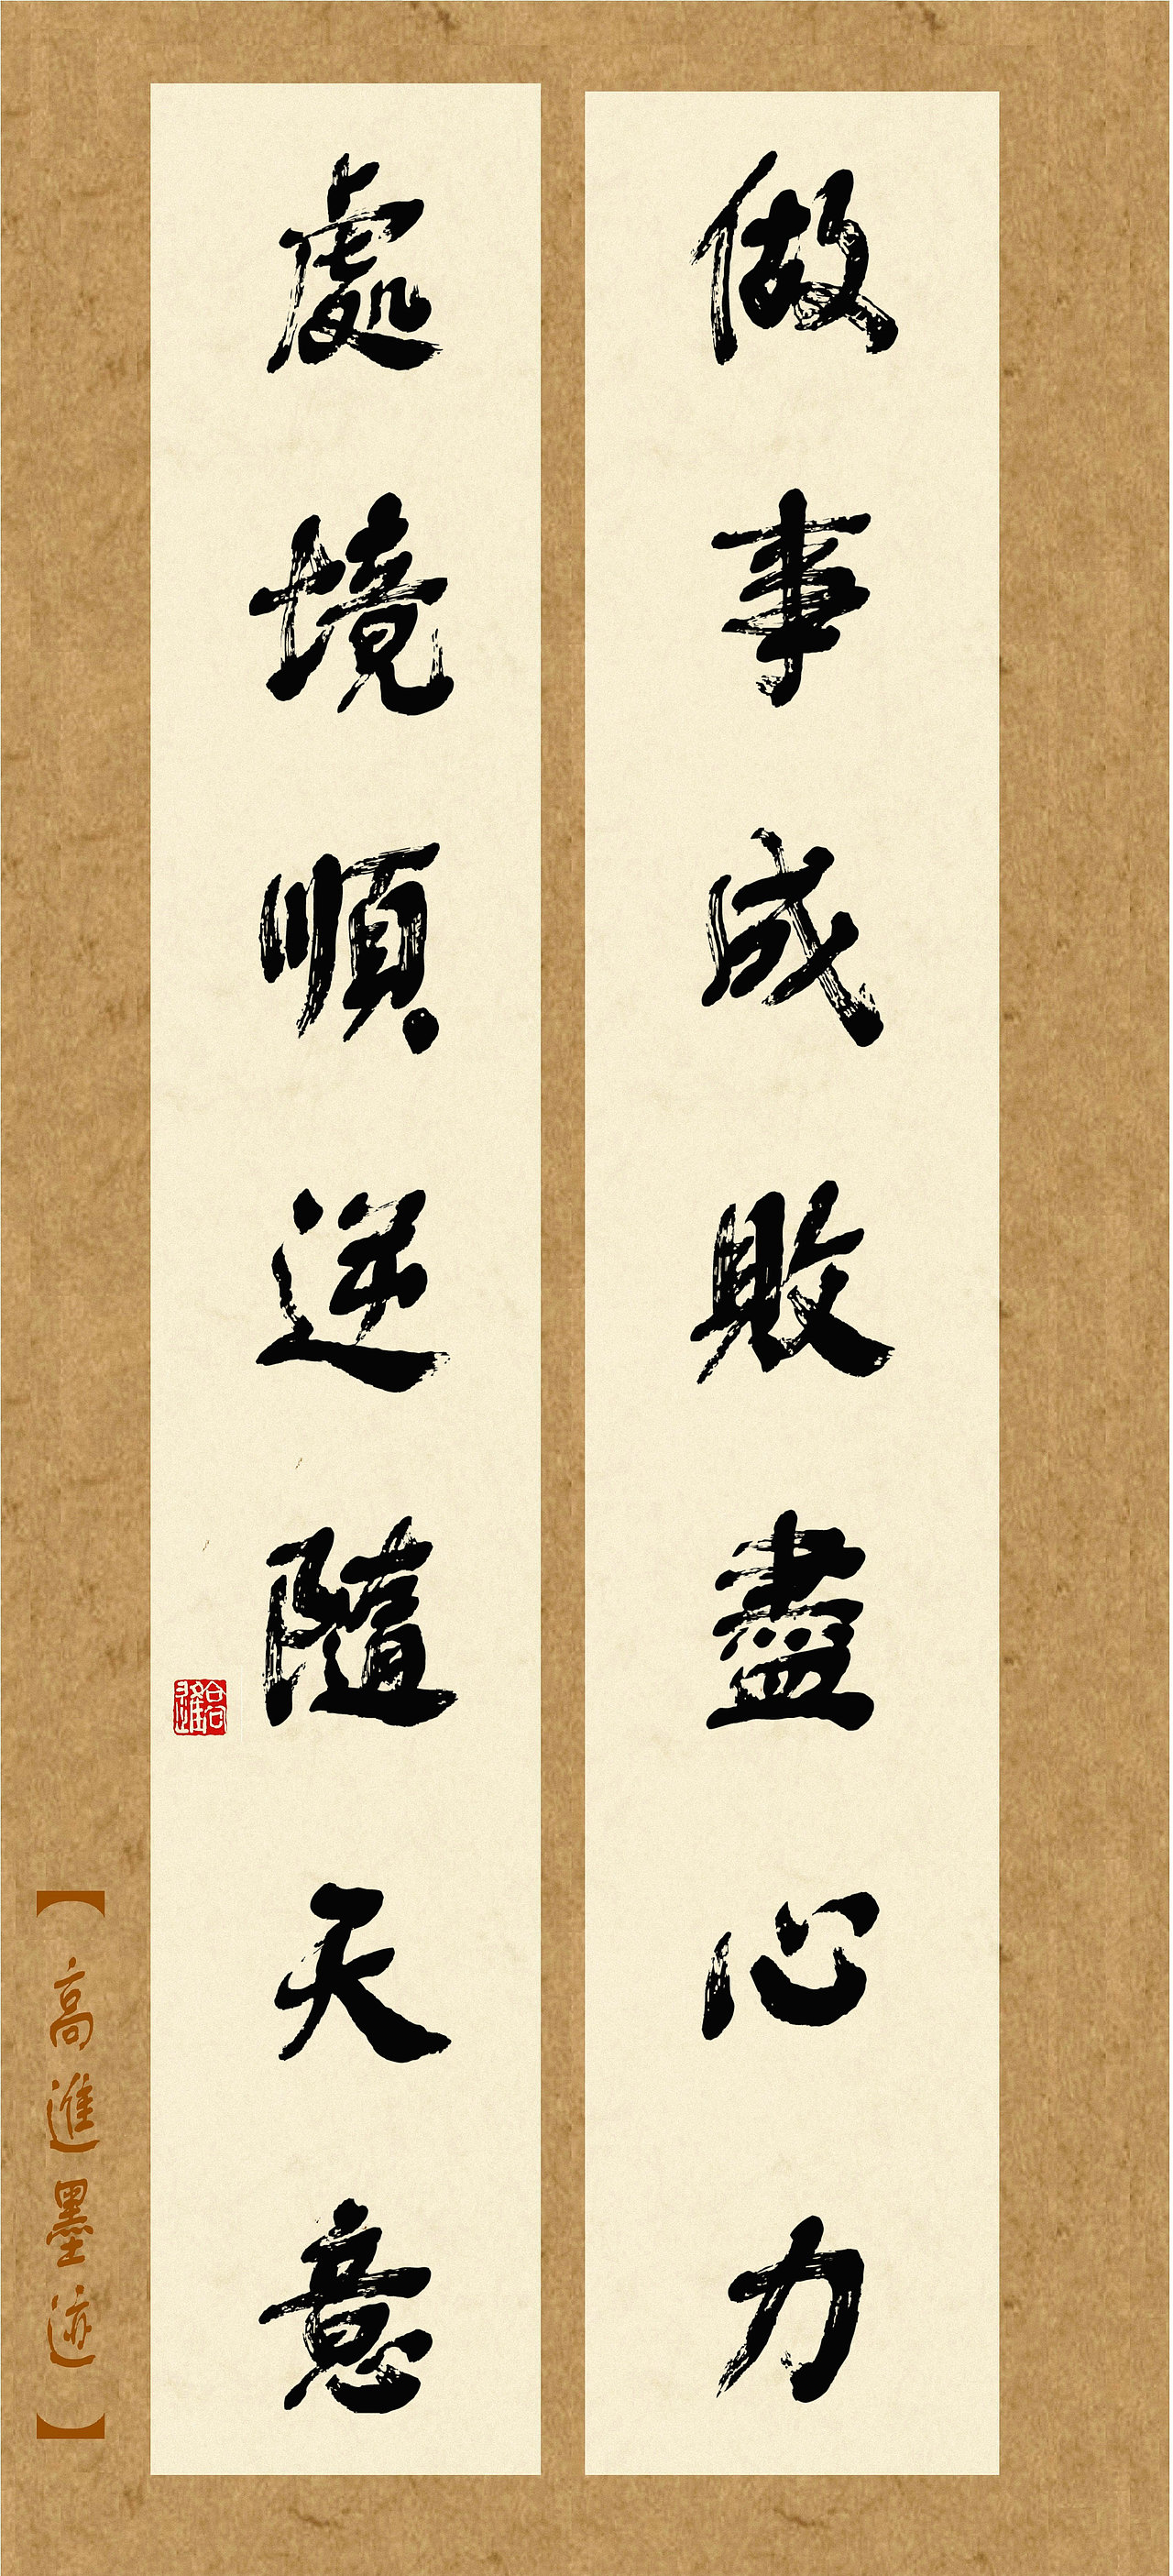 做事成敗盡心力
處境順逆隨天意
【高進墨迹】